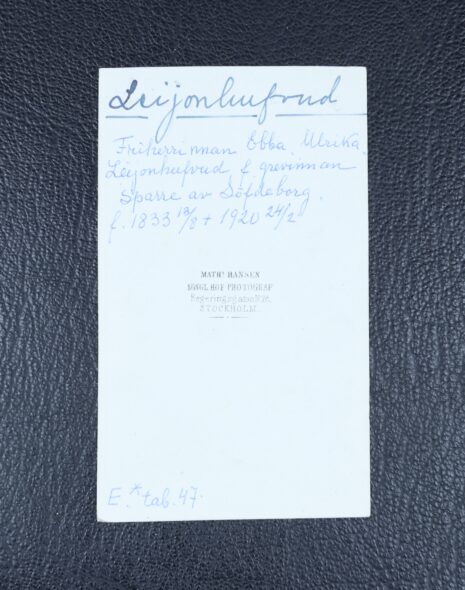 Leijonhufvud
Friherrinnan Ebba Ulrika
Leijonhufvud f. grevinnan
Sparre av Söfdeborg.
f. 1833 13/8 + 1920 24/2
MATHS HANSEN
KONGL. HOF-PHOTOGRAF
Regeringsgatan
STOCKHOLM.
E.* tab. 47.